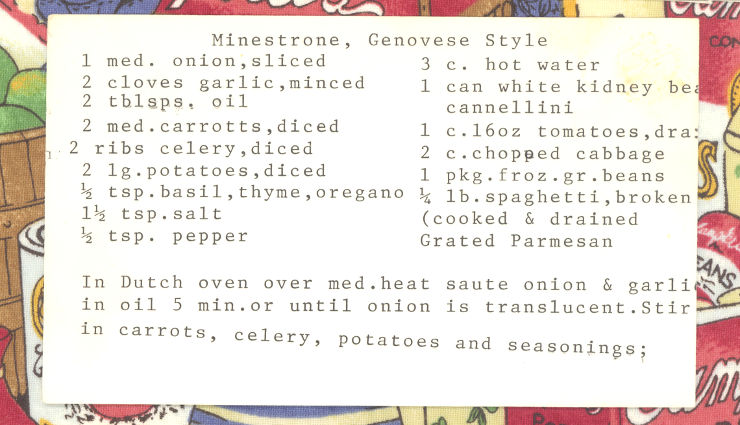 Minestrone, Genovese Style
1 med. onion,sliced
2 cloves garlic,minced
2 tblsps. oil
2 med.carrotts,diced
2 ribs celery,diced
2 lg.potatoes,diced
½ tsp.basil,thyme,oregano
1½ tsp.salt
½ tsp. pepper
3 c. hot water
1 can white kidney bea
cannellini
1 c.16oz tomatoes,dra
2 c.chopped cabbage
1 pkg.froz.gr.beans
¼ lb.spaghetti,broken
(cooked & drained
Grated Parmesan
In Dutch oven over med.heat saute onion & garli
in oil 5 min.or until onion is translucent.Stir
in carrots, celery, potatoes and seasonings;
CON
ANS